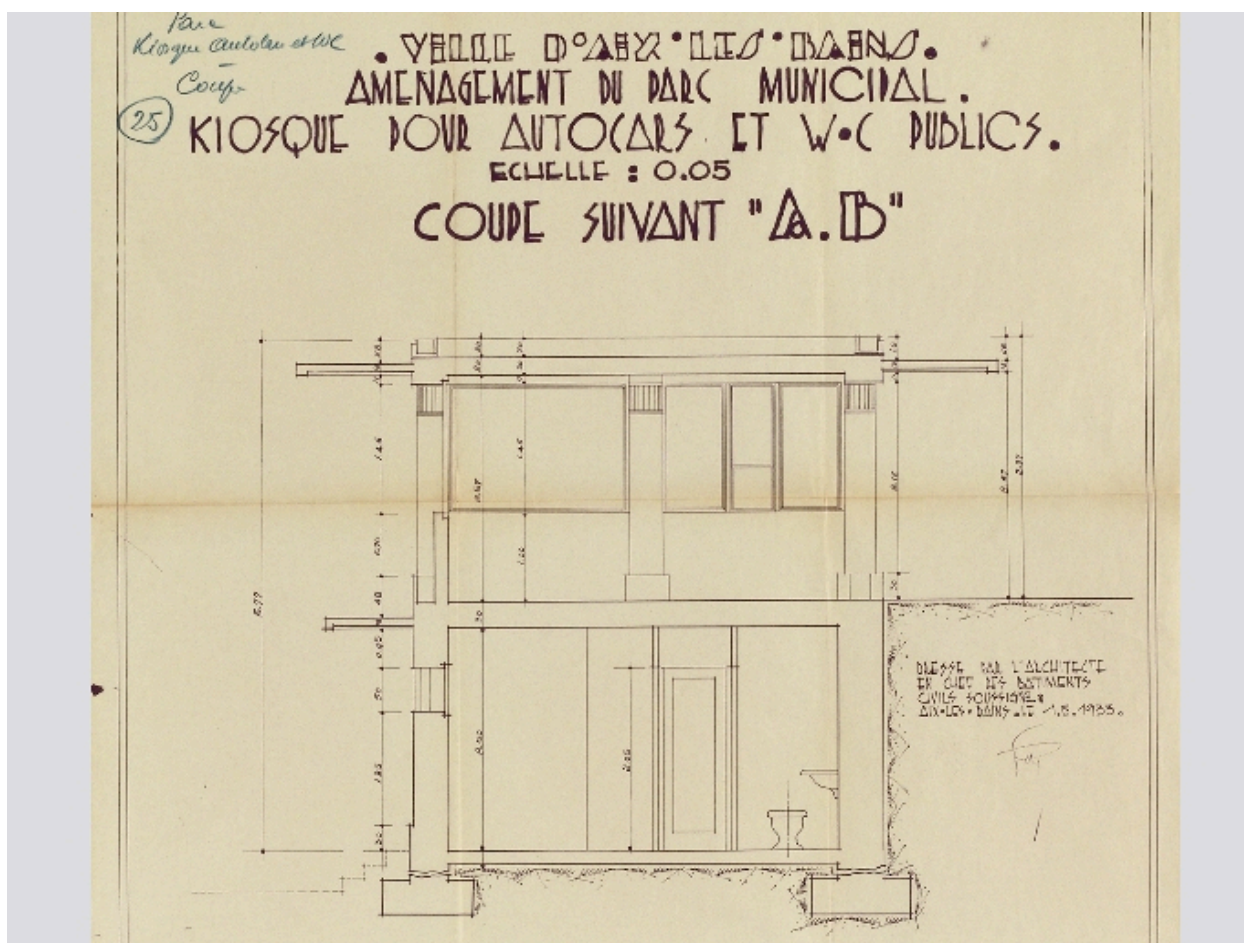 Parc
Kiosque autocar et WC
Coupe
25
. VILLE D'AIX•LES•BAINS.
AMENAGEMENT DU PARC MUNICIPAL.
KIOSQUE POUR AUTOCARS ET W•C PUBLICS.
ECHELLE : 0.05
COUPE SUIVANT "A.B"
1.45
1.45
0.70
1.00
40
30
30
50
2.05
DRESSE PAR L'ARCHITECTE
EN CHEF DES BATIMENTS
CIVILS SOUSSIGNE.
AIX•LES•BAINS.LE 1.8.1933.